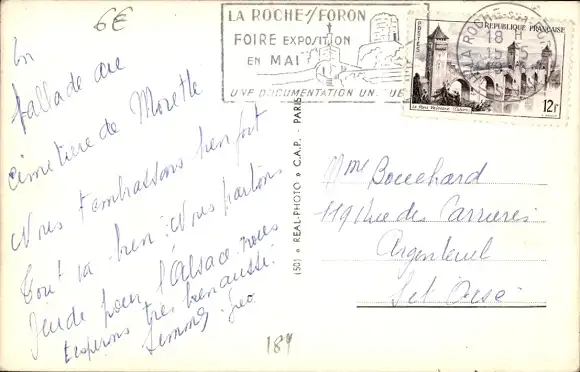 6€
ballade au
cimetière de Morette
Nous t'embrassons bien fort
Tout va bien. Nous partons
Jeudi pour l'Alsace. nous
espérons très bien aussi.
Geo
189
(50) « REAL-PHOTO » C.A.P. - PARIS
LA ROCHE S/ FORON
FOIRE EXPOSITION
EN MAI
UNE DOCUMENTATION UNIQUE
LA ROCHE-SUR-FORON
18 H
15-5
POSTES
REPUBLIQUE FRANÇAISE
Le Pont Valentré (Cahors)
12F
Mme Bouchard
119 Rue des Carrières
Argenteuil
Set Oise